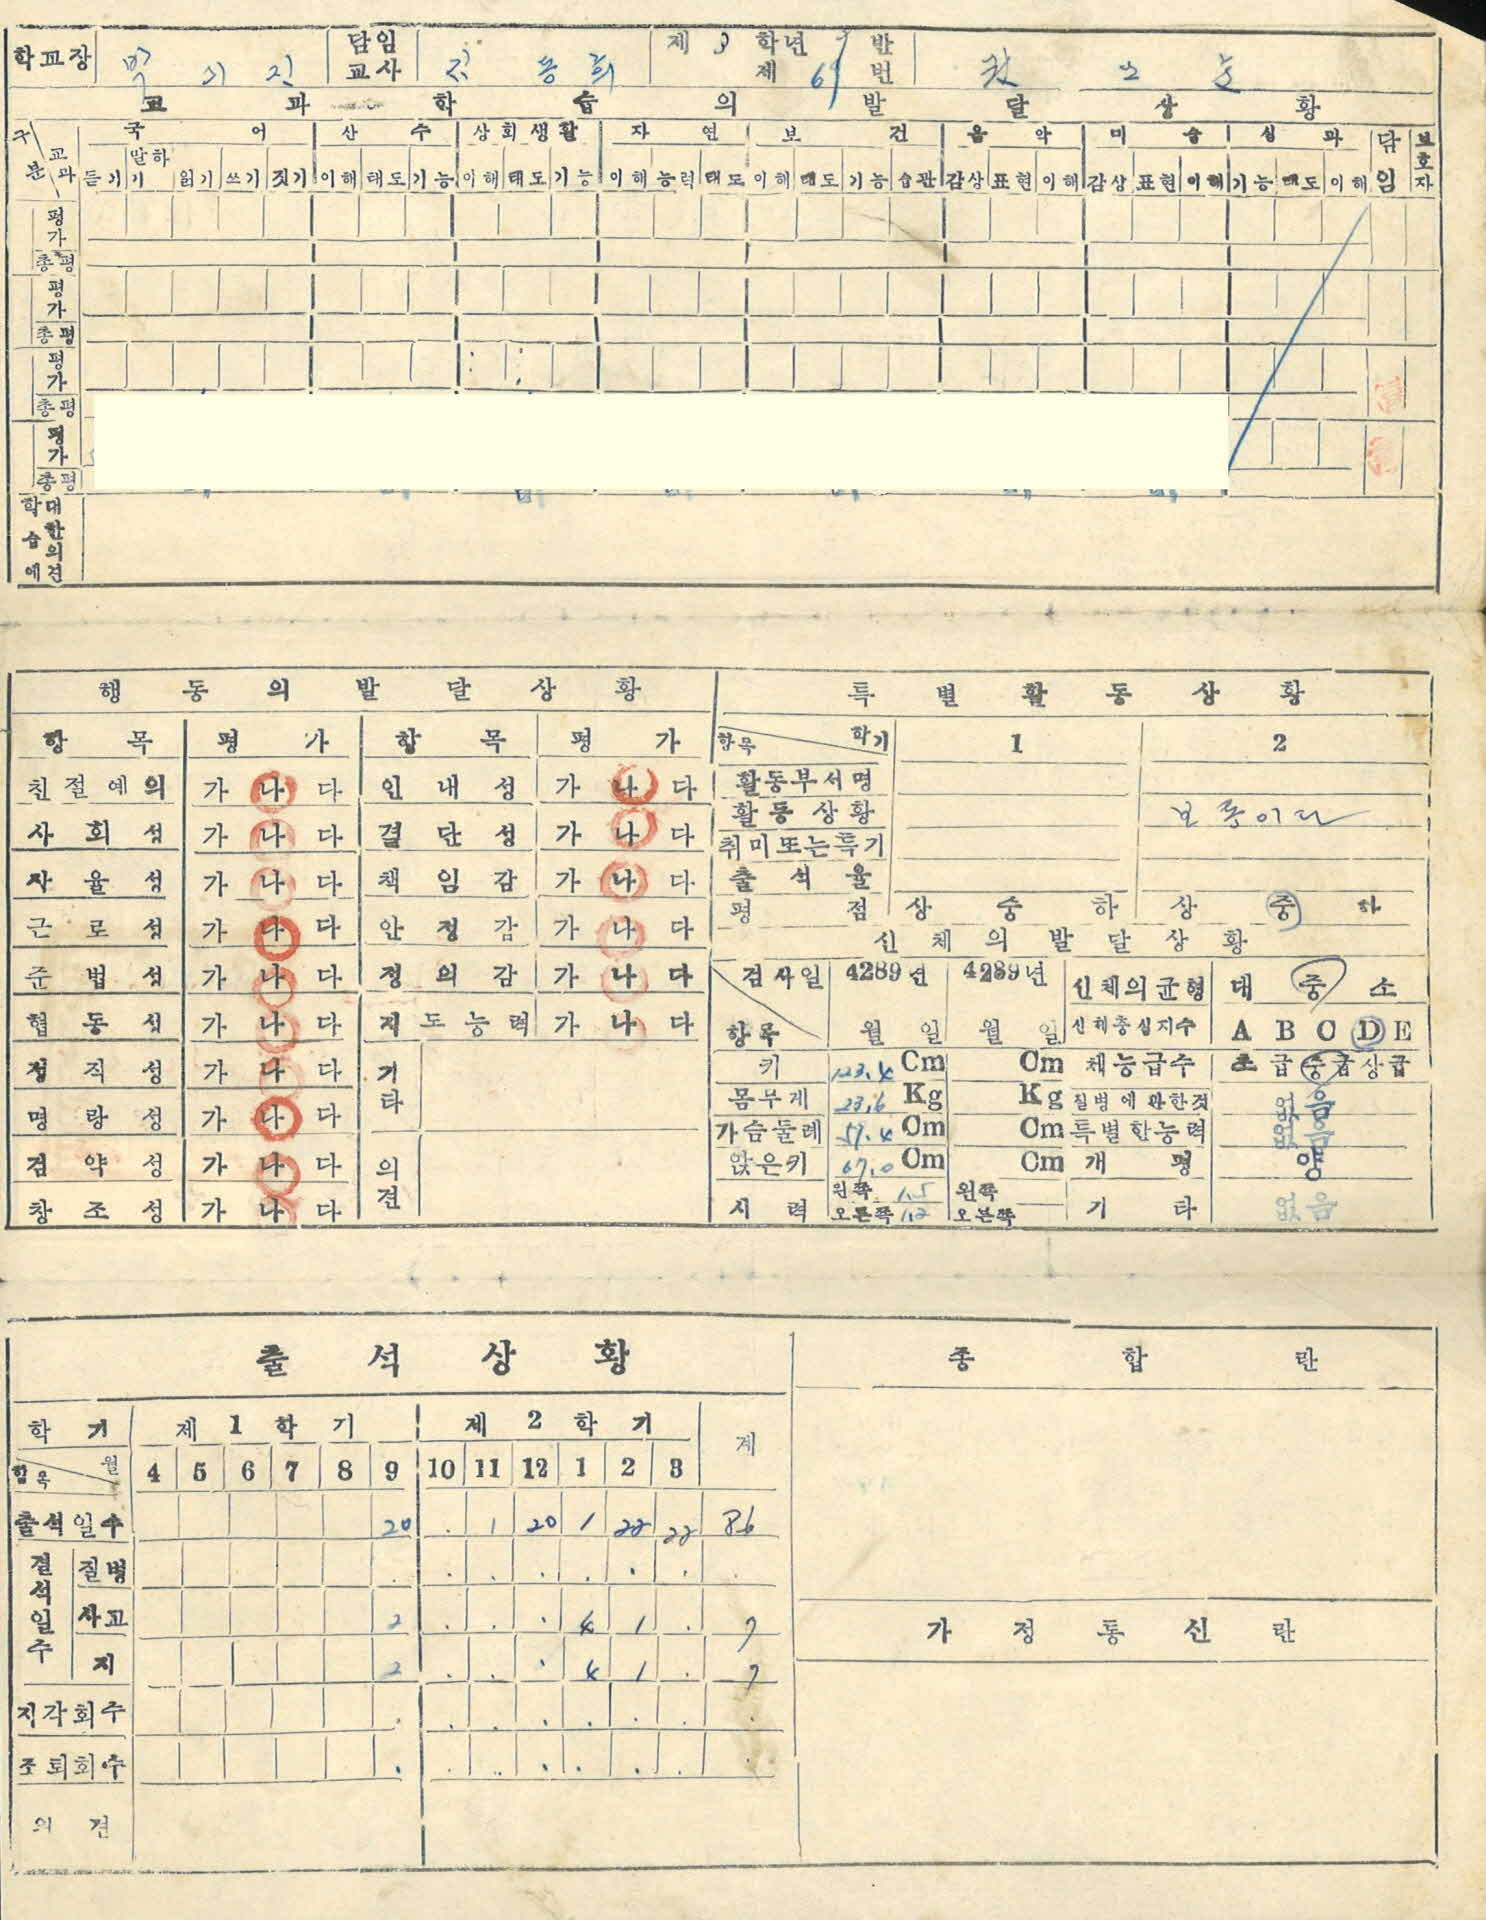 학교장 담임 교사 제 3 학년 반
제 번
교 과 학 습 의 발 달 상 황
구분 교과 국 어 산 수 사회생활 자 연 보 건 음 악 미 술 실 과 담임 보호자
듣기 말하기 읽기 쓰기 짓기 이해 태도 기능 이해 태도 기능 이해 능력 태도 이해 태도 기능 습관 감상 표현 이해 감상 표현 이해 기능 태도 이해
평가
총평
평가
총평
평가
총평
평가
총평
학습에 대한 의견
행 동 의 발 달 상 황
항 목 평 가 항 목 평 가
친절예의 가 나 다 인 내 성 가 나 다
사 회 성 가 나 다 결 단 성 가 나 다
자 율 성 가 나 다 책 임 감 가 나 다
근 로 성 가 나 다 안 정 감 가 나 다
준 법 성 가 나 다 정 의 감 가 나 다
협 동 성 가 나 다 지도능력 가 나 다
정 직 성 가 나 다 기타
명 랑 성 가 나 다
검 약 성 가 나 다 의견
창 조 성 가 나 다
특 별 활 동 상 황
항목 학기 1 2
활동부서명
활 동 상 황 보통이다
취미또는특기
출 석 율
평 점 상 중 하 상 중 하
신 체 의 발 달 상 황
검사일 4289년 4289년 신체의균형 대 중 소
항목 월 일 월 일 신체충실지수 A B C D E
키 123.4 Cm Cm 체능급수 초급 중급 상급
몸무게 23.6 Kg Kg 질병에관한것 없음
가슴둘레 57.4 Cm Cm 특별한능력 없음
앉은키 67.0 Cm Cm 개 평 양
시 력 왼쪽 1.5 왼쪽 기 타 없음
오른쪽 1.2 오른쪽
출 석 상 황
학 기 제 1 학 기 제 2 학 기 계
항목 월 4 5 6 7 8 9 10 11 12 1 2 3
출석일수 20 . 1 20 1 22 22 86
결석일수 질병 . . . . . . . .
사고 2 . . . 4 1 . 7
지 2 . . . 4 1 . 7
지각회수 . . . . . . . .
조퇴회수 . . . . . . . .
의 견
종 합 란
가 정 통 신 란